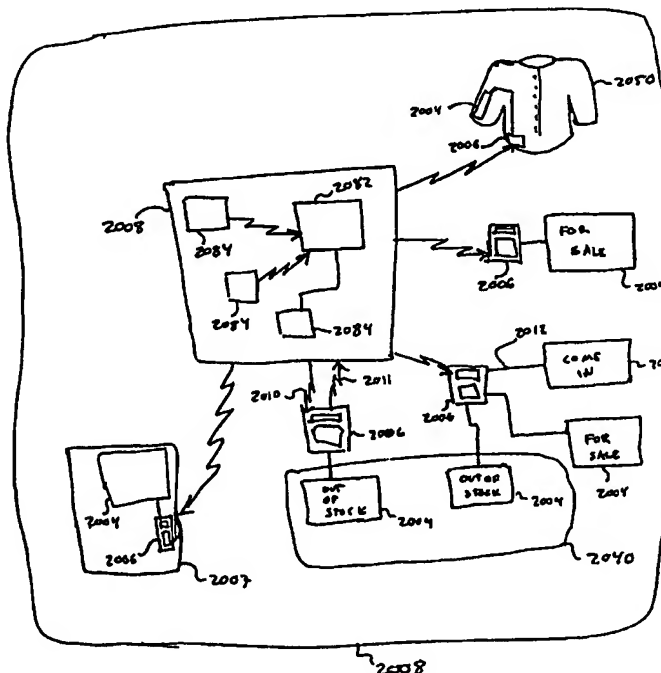 2004
2050
2006
2008
2082
2084
2084
2084
FOR
SALE
2006
2012
COME
IN
2010
2011
2006
2006
FOR
SALE
2004
OUT
OF
STOCK
2004
OUT OF
STOCK
2004
2004
2006
2007
2040
2008